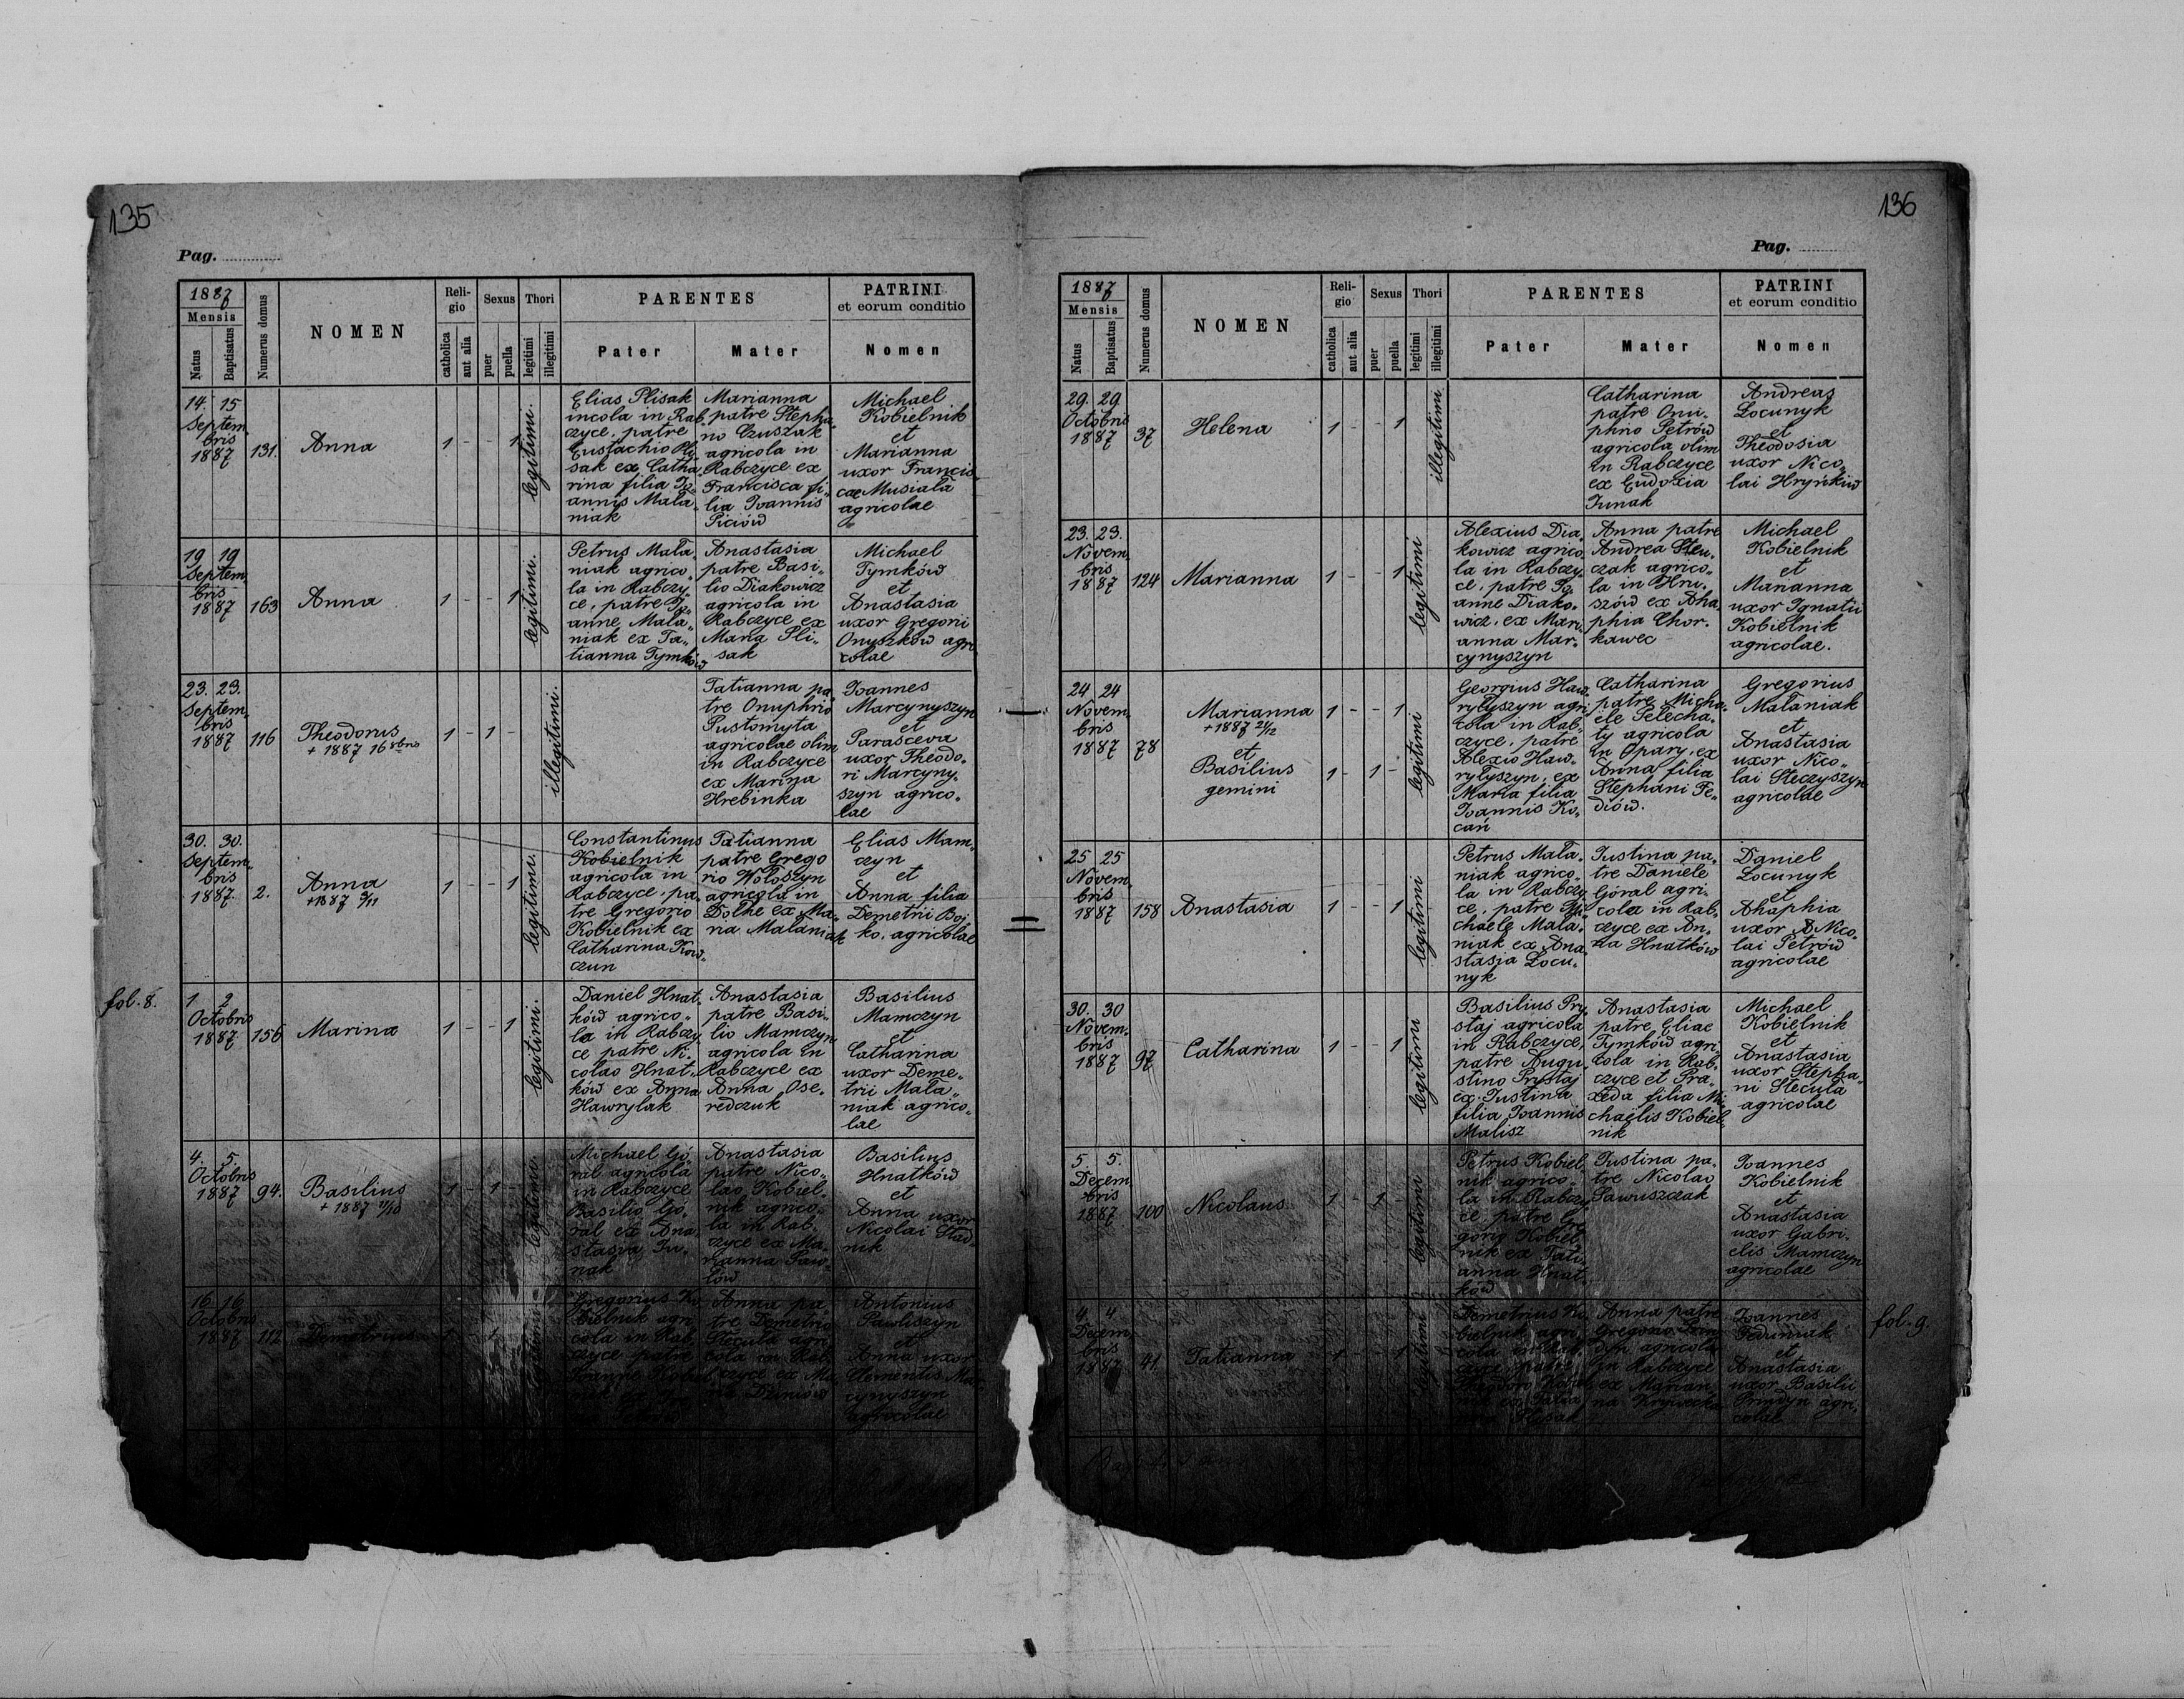 135
Pag.
1887
Mensis
Natus
Baptisatus
Numerus domus
NOMEN
Reli-
gio
catholica
aut alia
Sexus
puer
puella
Thori
legitimi
illegitimi
PARENTES
Pater
Mater
PATRINI
et eorum conditio
Nomen
14. 15
Septem„
bris
1887
131.
Anna
1 - - 1
legitimi.
Elias Plisak
incola in Rab„
czyce, patre
Eustachio Pli„
sak ex Catha„
rina filia Jo„
annis Mała„
niak
Marianna
patre Stepha„
no Czuszak
agricola in
Rabczyce ex
Francisca fi„
lia Joannis
Piciów
Michael
Kobielnik
et
Marianna
uxor Francis„
cae Musiała
agricolae
19 19
Septem„
bris
1887
163
Anna
1 - - 1
legitimi.
Petrus Mała„
niak agrico„
la in Rabczy„
ce, patre Jo„
anne Mała„
niak ex Ta„
tianna Tymków
Anastasia
patre Basi„
lio Diakowicz
agricola in
Rabczyce ex
Maria Pli„
sak
Michael
Tymków
et
Anastasia
uxor Gregorii
Onyszków agri
colae
23. 23.
Septem„
bris
1887
116
Theodorus
+ 1887 16 8bris
1 - 1 -
illegitimi.
Tatianna pa
tre Onuphrio
Pustomyta
agricolae olim
in Rabczyce
ex Marina
Hrebinka
Joannes
Marcynyszyn
et
Parasceva
uxor Theodo„
ri Marcyny„
szyn agrico„
lae
30. 30.
Septem„
bris
1887.
2.
Anna
+1887 /11
1 - - 1
legitimi.
Constantinus
Kobielnik
agricola in
Rabczyce, pa„
tre Gregorio
Kobielnik ex
Catharina Kow„
czun
Tatianna
patre Grego
rio Wołoszyn
agricola in
Dołhe ex Ma„
ria Małaniak
Elias Mam„
czyn
et
Anna filia
Demetrii Boj
ko, agricolae
fol. 8.
1 2
Octobris
1887.
156
Marina
1 - - 1
legitimi.
Daniel Hnat„
ków agrico„
la in Rabczy
ce patre Ni„
colao Hnat„
ków ex Anna
Hawrylak
Anastasia
patre Basi„
lio Mamczyn
agricola in
Rabczyce ex
Anna Ose„
redczuk
Basilius
Mamczyn
et
Catharina
uxor Deme„
trii Mała„
niak agrico„
lae
4. 5.
Octobris
1887
94.
Basilius
+ 1887 /10
1 - 1 -
legitimi.
Michael Gó
ral agricola
in Rabczyce
Basilio Gó„
ral ex Ana
stasia Ju„
nak
Anastasia
patre Nico„
lao Kobiel„
nik agrico„
la in Rab„
czyce ex Ma„
rianna Paw„
lów
Basilius
Hnatków
et
Anna uxor
Nicolai Stad„
nik
16 16
Octobris
1887
112
Demetrius
1 - 1 -
Gregorius Ko
bielnik agri
cola in Rab
czyce patre
Joanne Kobiel
Anna pa„
tre Demetrio
Stecuła agri
cola in Rab
czyce ex Ma
Antonius
Pawliszyn
et
Anna uxor
Clementis Mar
cynyszyn
agricolae
136
Pag.
1887
Mensis
Natus
Baptisatus
Numerus domus
NOMEN
Reli-
gio
catholica
aut alia
Sexus
puer
puella
Thori
legitimi
illegitimi
PARENTES
Pater
Mater
PATRINI
et eorum conditio
Nomen
29. 29
Octobris
1887
37
Helena
1 - - 1
illegitimi.
Catharina
patre Onu„
phrio Petrów
agricola olim
in Rabczyce
ex Eudoxia
Junak
Andreas
Łocunyk
et
Theodosia
uxor Nico„
lai Hryńków
23. 23.
Novem„
bris
1887
124
Marianna
1 - - 1
legitimi
Alexius Dia„
kowicz agrico„
la in Rabczy„
ce, patre Jo„
anne Diako„
wicz, ex Mari„
anna Mar„
cynyszyn
Anna patre
Andrea Steu„
czak agrico„
la in Hru„
szów ex Aha„
phia Chor„
kawec
Michael
Kobielnik
et
Marianna
uxor Ignatii
Kobielnik
agricolae.
24 24
Novem„
bris
1887
78
Marianna
+1887 24/12
et
Basilius
gemini
1 - - 1
1 - 1 -
legitimi
Georgius Haw„
ryłyszyn agri
cola in Rab„
czyce, patre
Alexio Haw„
ryłyszyn, ex
Maria filia
Joannis Ko„
cań
Catharina
patre Micha„
ele Selecha„
ty agricola
in Opary, ex
Anna filia
Stephani Fe„
diów.
Gregorius
Małaniak
et
Anastasia
uxor Nico„
lai Steczyszyn
agricolae
25 25
Novem„
bris
1887
158
Anastasia
1 - - 1
legitimi
Petrus Mała„
niak agrico„
la in Rabczy
ce, patre Mi„
chaele Mała„
niak ex Ana
stasia Łocu„
nyk
Justina pa„
tre Daniele
Góral agri„
cola in Rab„
czyce ex An„
na Hnatków
Daniel
Łocunyk
et
Ahaphia
uxor Nico„
lai Petrów
agricolae
30. 30
Novem„
bris
1887
97
Catharina
1 - - 1
legitimi
Basilius Pry„
staj agricola
in Rabczyce,
patre Augu„
stino Prystaj
ex Justina
filia Joannis
Malisz
Anastasia
patre Eliae
Tymków agri„
cola in Rab„
czyce et Pra„
xeda filia Mi
chaëlis Kobiel
nik
Michael
Kobielnik
et
Anastasia
uxor Stepha„
ni Stecuła
agricolae
5. 5.
Decem
bris
1887
100
Nicolaus
1 - 1 -
legitimi
Petrus Kobiel„
nik agrico„
la in Rabczy
ce patre Gre
gorio Kobiel
nik ex Tati„
anna Hnat„
ków
Justina pa„
tre Nicolao
Sawuszczak
Joannes
Kobielnik
et
Anastasia
uxor Gabri„
elis Mamczyn
agricolae
4 4
Decem
bris
1887
41.
Tatianna
1 - - 1
legitimi
Demetrius Ko
bielnik agri
cola in Rab
czyce, patre
Anna patre
Gregorio
agricola
in Rabczyce
ex Marian
na
Joannes
Feduniak
et
Anastasia
uxor Basilii
agri„
colae
fol. 9.